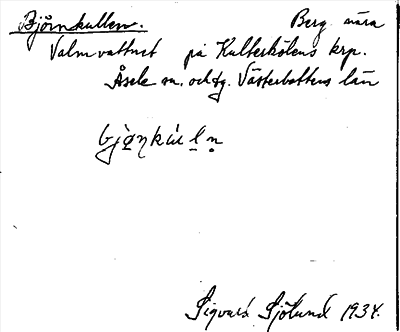 Björnkullen. Berg nära
Valmvattnet på Kultsjölens krp.
Åsele sn. och tg. Västerbottens län
bjo̤ŋkúl̲n̥
Sigvard Sjölund 1934.